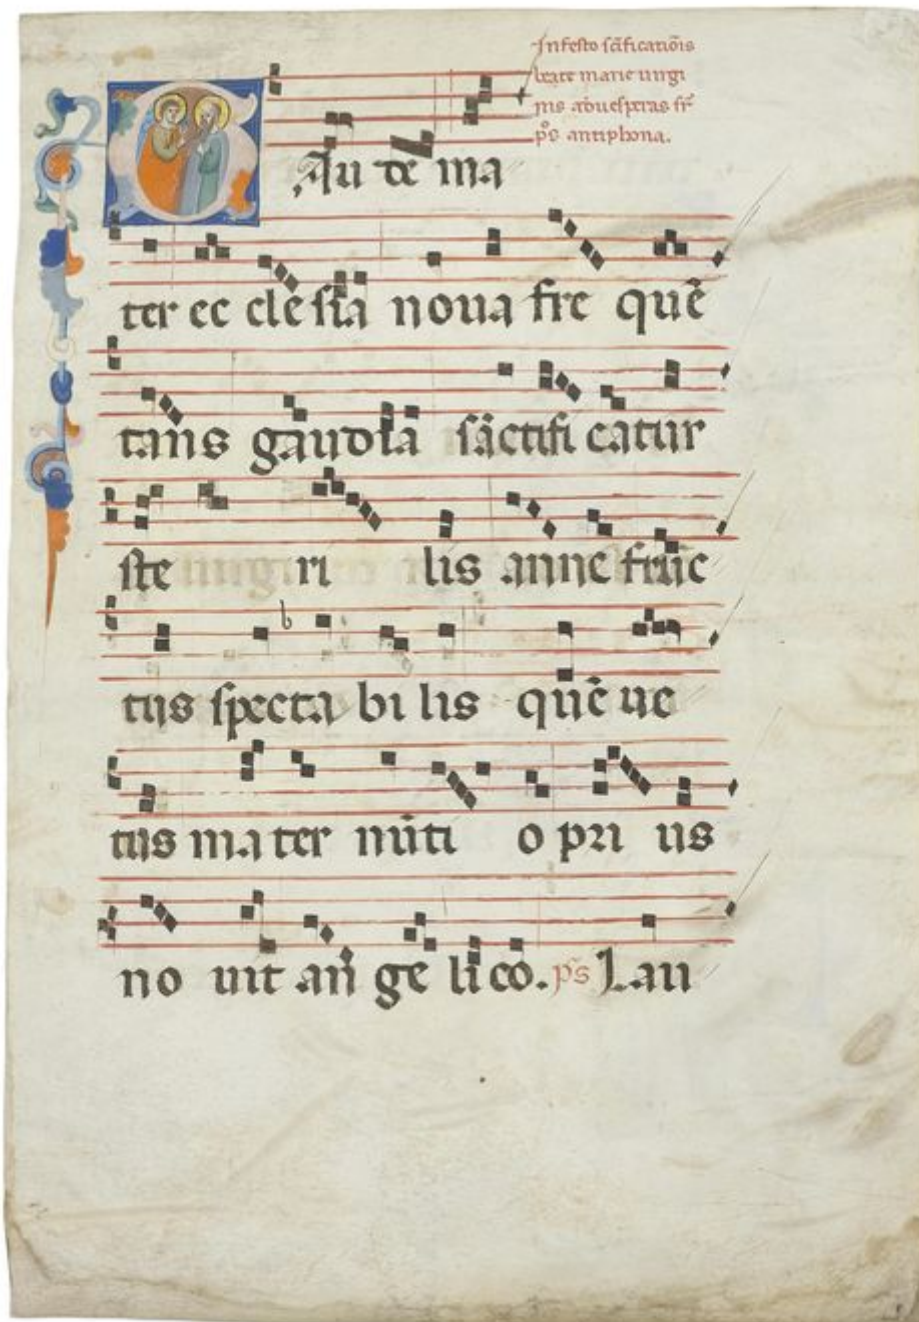 In festo sc̄ificatiōis
beate marie uirgi
nis ad uesperas sr̄
ps̄ antiphona.
Gau de ma
ter ec cle sia noua fre quē
tans gaudia sāctifi catur
ste ri lis anne fruc
tus specta bi lis quē ue
tus ma ter nūti o pri us
no uit an ge li co. ps̄ Lau